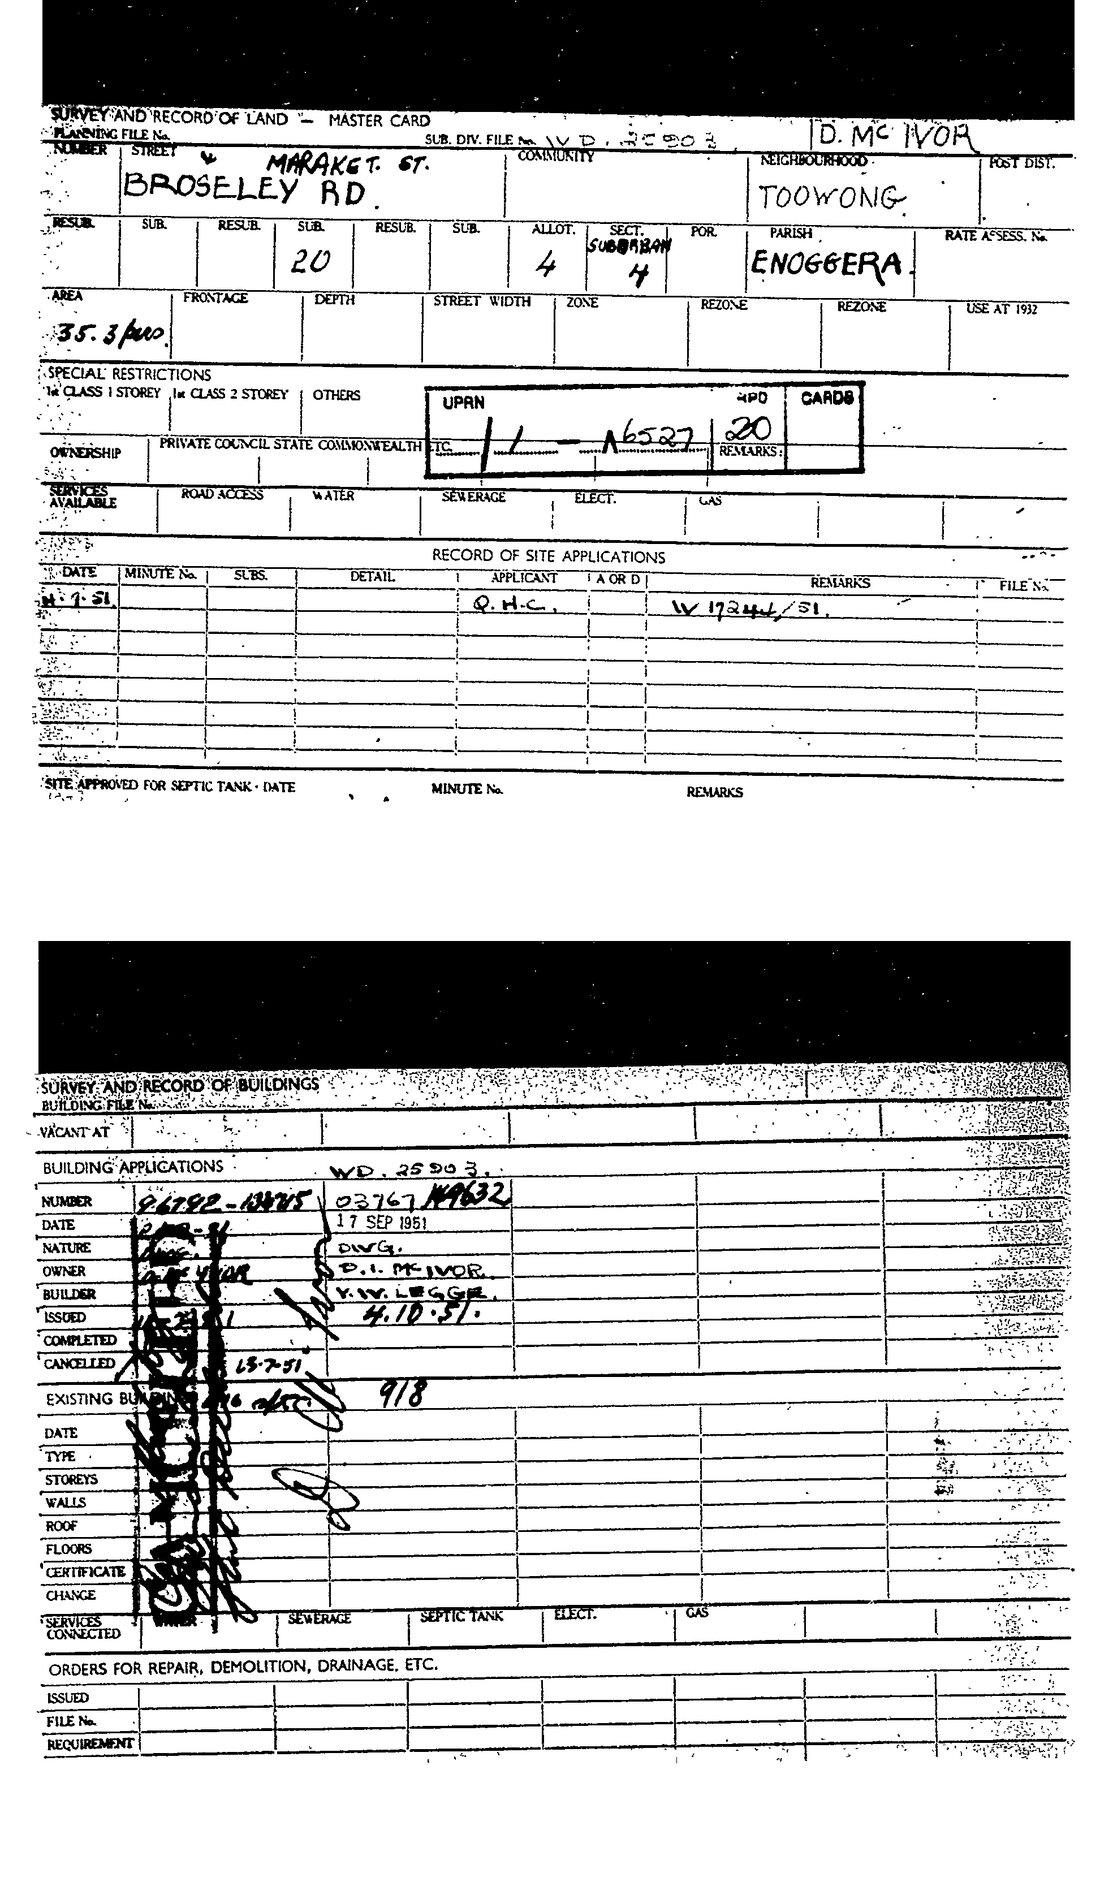 SURVEY AND RECORD OF LAND — MASTER CARD
PLANNING FILE No. SUB. DIV. FILE No. WD. 25903 D. McIVOR
NUMBER STREET COMMUNITY NEIGHBOURHOOD POST DIST.
& MARAKET. ST.
BROSELEY RD. TOOWONG.
RESUB. SUB. RESUB. SUB. RESUB. SUB. ALLOT. SECT. POR. PARISH RATE ASSESS. No.
20 4 SUBURBAN 4 ENOGGERA.
AREA FRONTAGE DEPTH STREET WIDTH ZONE REZONE REZONE USE AT 1932
35.3 pers.
SPECIAL RESTRICTIONS
1st CLASS 1 STOREY 1st CLASS 2 STOREY OTHERS
UPRN RPD CARDS
/ 1 — 6527 20
REMARKS:
OWNERSHIP PRIVATE COUNCIL STATE COMMONWEALTH ETC.
SERVICES AVAILABLE ROAD ACCESS WATER SEWERAGE ELECT. GAS
RECORD OF SITE APPLICATIONS
DATE MINUTE No. SUBS. DETAIL APPLICANT A OR D REMARKS FILE No.
7.51. Q.H.C. W 17244/51.
SITE APPROVED FOR SEPTIC TANK - DATE MINUTE No. REMARKS
SURVEY AND RECORD OF BUILDINGS
BUILDING FILE No.
VACANT AT
BUILDING APPLICATIONS WD. 25903.
NUMBER 03767
DATE 17 SEP 1951
NATURE DWG.
OWNER D.I. McIVOR.
BUILDER V.W. LEGGE.
ISSUED 4.10.51.
COMPLETED
CANCELLED 13-7-51.
EXISTING BUILDINGS 918
DATE
TYPE
STOREYS
WALLS
ROOF
FLOORS
CERTIFICATE
CHANGE
CANCELLED
SERVICES CONNECTED WATER SEWERAGE SEPTIC TANK ELECT. GAS
ORDERS FOR REPAIR, DEMOLITION, DRAINAGE, ETC.
ISSUED
FILE No.
REQUIREMENT